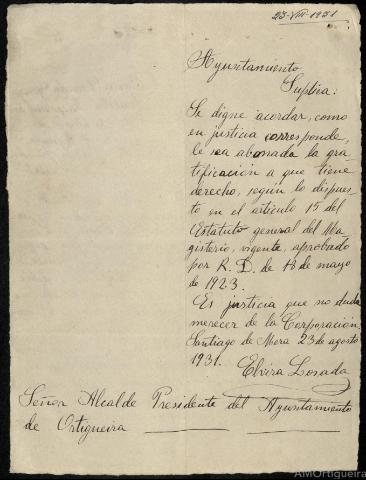 23-VIII-1931
Ayuntamiento
Suplica:
Se digne acordar, como
en justicia corresponde,
le sea abonada la gra-
tificación a que tiene
derecho, según lo dispues-
to en el articulo 15 del
Estatuto general del Ma-
gisterio, vigente, aprobado
por R. D. de 18 de mayo
de 1923.
Es justicia que no duda
merecer de la Corporación.
Santiago de Mera 23 de agosto
1931.
Elvira Losada
Señor Alcalde Presidente del Ayuntamiento
de Ortigueira
AMOrtigueira